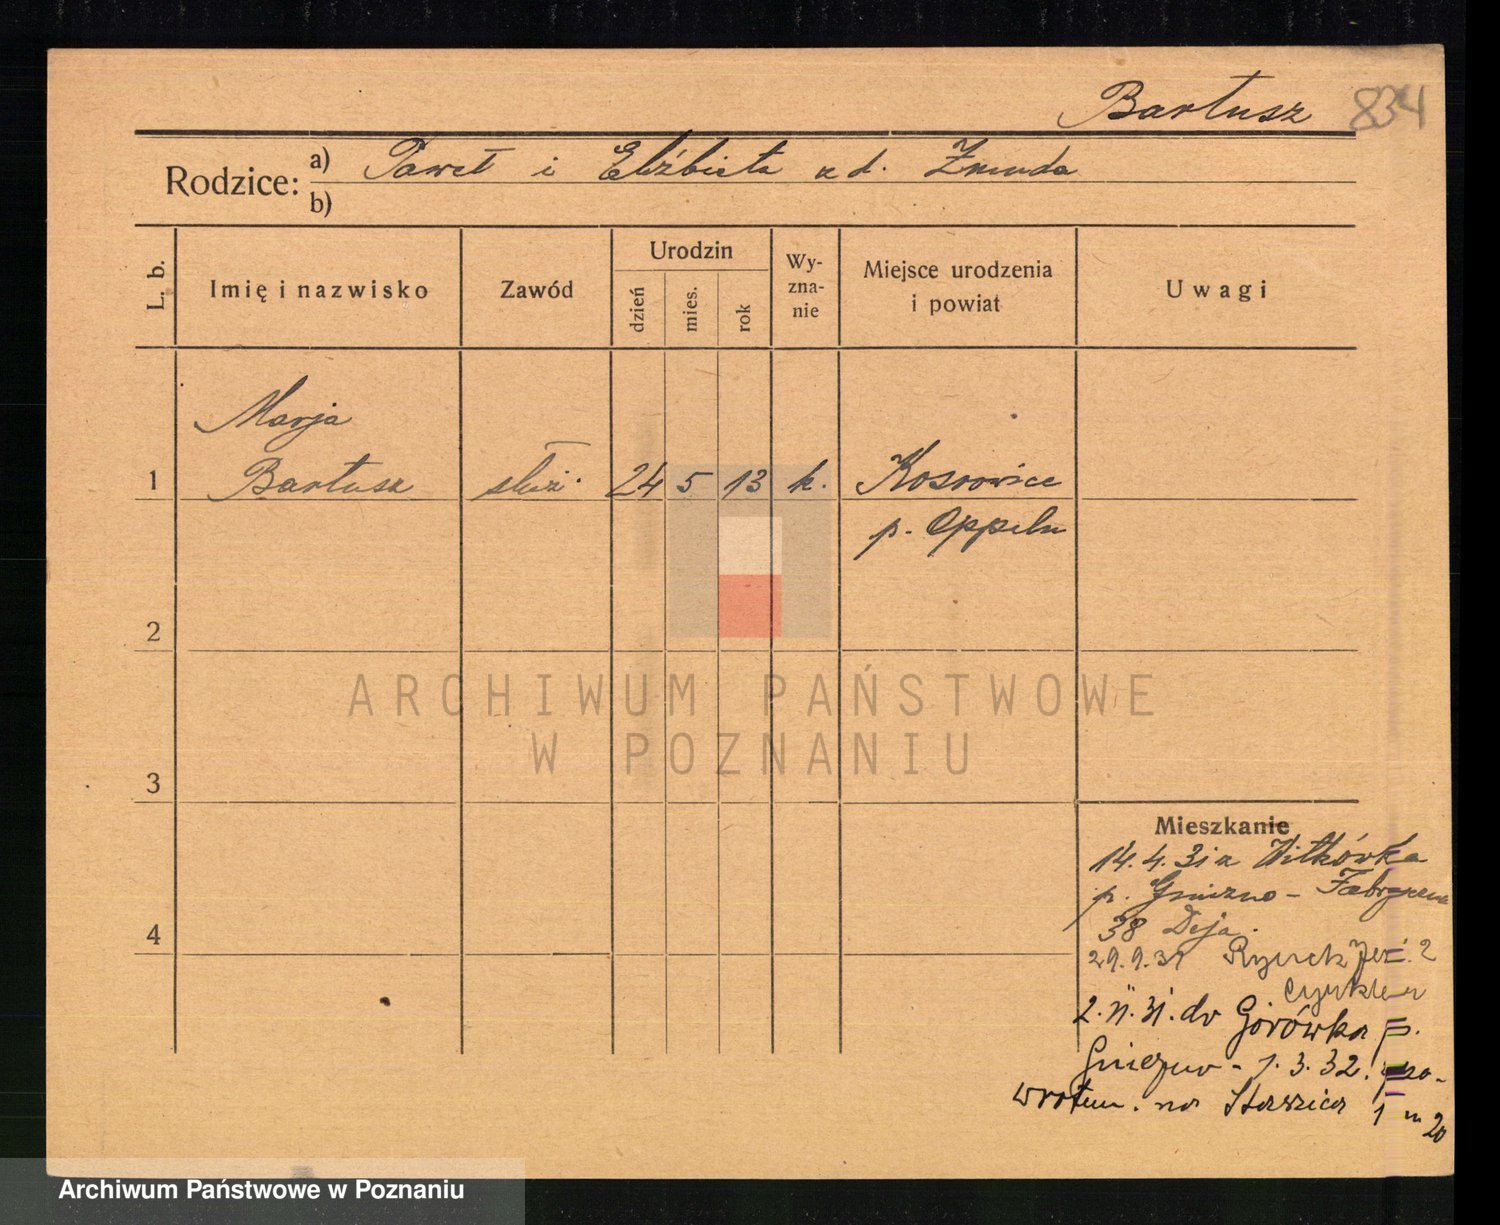 Bartusz 834
Rodzice: a) Paweł i Elżbieta zd. Żmuda
b)
L. b.
Imię i nazwisko
Zawód
Urodzin
dzień
mies.
rok
Wy-
zna-
nie
Miejsce urodzenia
i powiat
Uwagi
Marja
1 Bartusz służ. 24 5 13 k. Kosrowice
p. Oppeln
2
ARCHIWUM PAŃSTWOWE
W POZNANIU
3
Mieszkanie
14.4.31 z Witkówka
p. Gniezno - Fabryczna
4
38 Deja.
29.9.31 Rynek Jeż. 2
2.11.31. do Gorówka p.
Gniezno - 1.3.32. spo-
wrotem. na Staszica 1 m 20
Archiwum Państwowe w Poznaniu